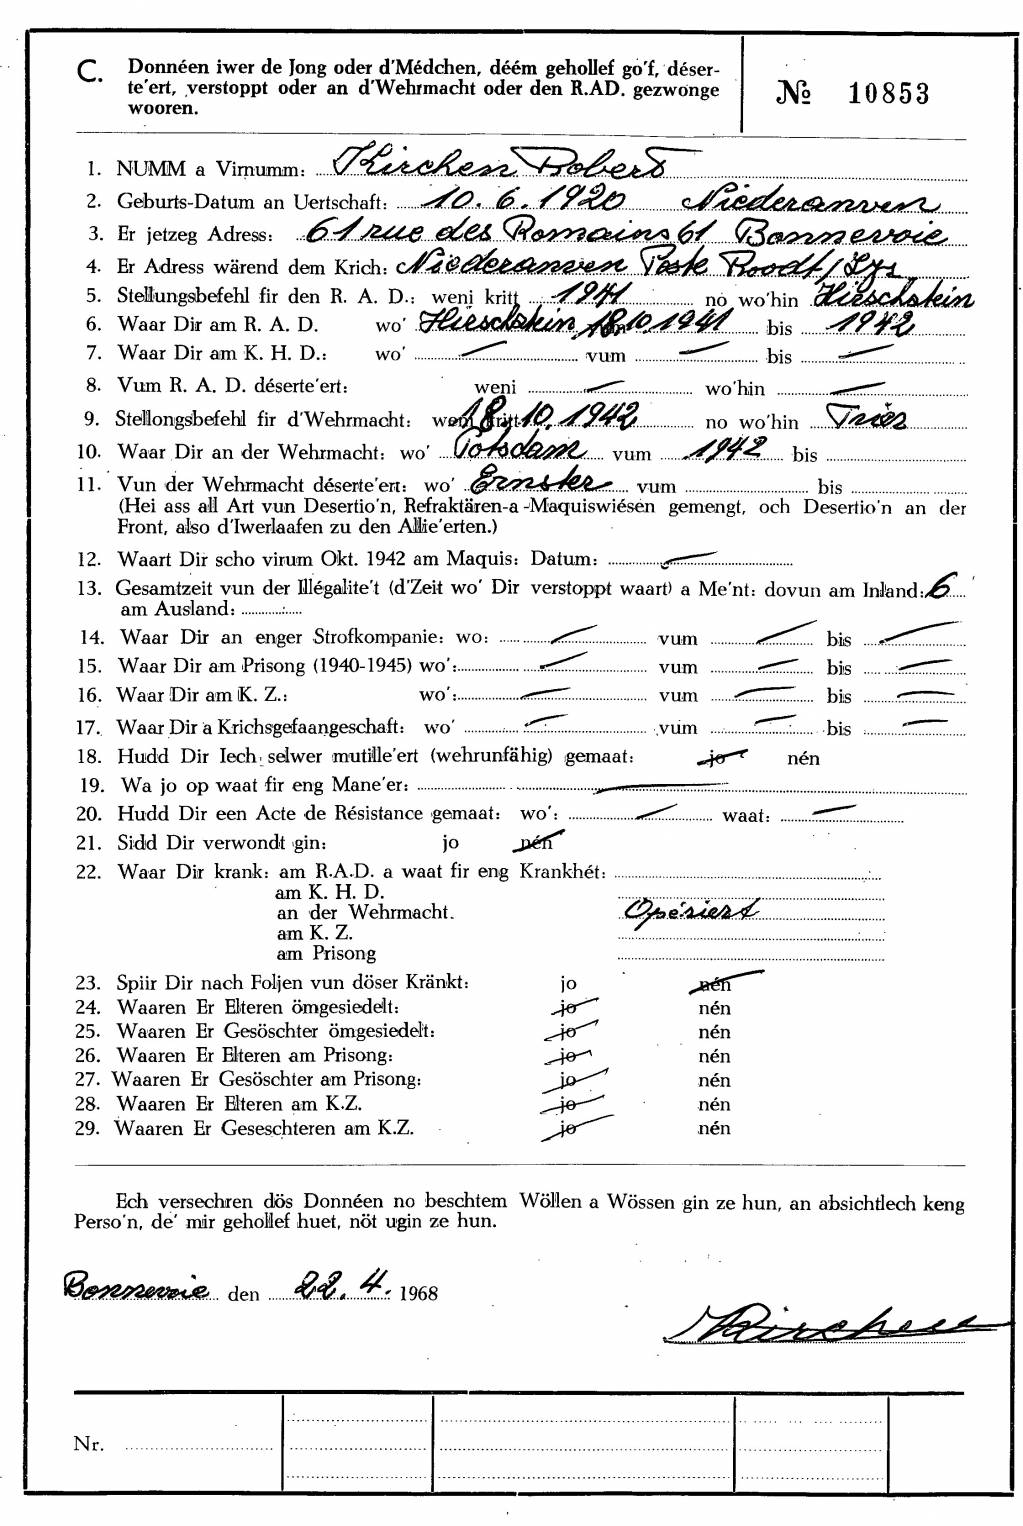 C. Donnéen iwer de Jong oder d'Médchen, déém gehollef go'f, déser-
te'ert, verstoppt oder an d'Wehrmacht oder den R.AD. gezwonge
wooren.
№ 10853
1. NUMM a Virnumm: Kirchen Robert
2. Geburts-Datum an Uertschaft: 10.6.1920 Niederanven
3. Er jetzeg Adress: 61 rue des Romains 61 Bonnevoie
4. Er Adress wärend dem Krich: Niederanven Poste Roodt/Syr
5. Stellungsbefehl fir den R. A. D.: weni kritt 1941 no wo'hin Hirschstein
6. Waar Dir am R. A. D. wo' Hirschstein 18.10.1941 bis 1942
7. Waar Dir am K. H. D.: wo' — vum — bis —
8. Vum R. A. D. déserte'ert: weni — wo'hin —
9. Stellongsbefehl fir d'Wehrmacht: weni kritt 18.10.1942 no wo'hin Trier
10. Waar Dir an der Wehrmacht: wo' Potsdam vum 1942 bis
11. Vun der Wehrmacht déserte'ert: wo' Ernster vum bis
(Hei ass all Art vun Desertio'n, Refraktären-a-Maquiswiésen gemengt, och Desertio'n an der
Front, also d'Iwerlaafen zu den Allie'erten.)
12. Waart Dir scho virum Okt. 1942 am Maquis: Datum: —
13. Gesamtzeit vun der Illégalite't (d'Zeit wo' Dir verstoppt waart) a Me'nt: dovun am Inland: 6
am Ausland:
14. Waar Dir an enger Strofkompanie: wo: — vum — bis —
15. Waar Dir am Prisong (1940-1945) wo': — vum — bis —
16. Waar Dir am K. Z.: wo': — vum — bis —
17. Waar Dir a Krichsgefaangeschaft: wo' — vum — bis —
18. Hudd Dir Iech selwer mutille'ert (wehrunfähig) gemaat: jo nén
19. Wa jo op waat fir eng Mane'er: —
20. Hudd Dir een Acte de Résistance gemaat: wo': — waat: —
21. Sidd Dir verwondt gin: jo nén
22. Waar Dir krank: am R.A.D. a waat fir eng Krankhét:
am K. H. D.
an der Wehrmacht. Operiert
am K. Z.
am Prisong
23. Spiir Dir nach Foljen vun döser Kränkt: jo nén
24. Waaren Er Elteren ömgesiedelt: jo nén
25. Waaren Er Gesöschter ömgesiedelt: jo nén
26. Waaren Er Elteren am Prisong: jo nén
27. Waaren Er Gesöschter am Prisong: jo nén
28. Waaren Er Elteren am K.Z. jo nén
29. Waaren Er Geseschteren am K.Z. jo nén
Ech versechren dös Donnéen no beschtem Wöllen a Wössen gin ze hun, an absichtlech keng
Perso'n, de' mir gehollef huet, nöt ugin ze hun.
Bonnevoie den 22.4. 1968
Kirchen
Nr.